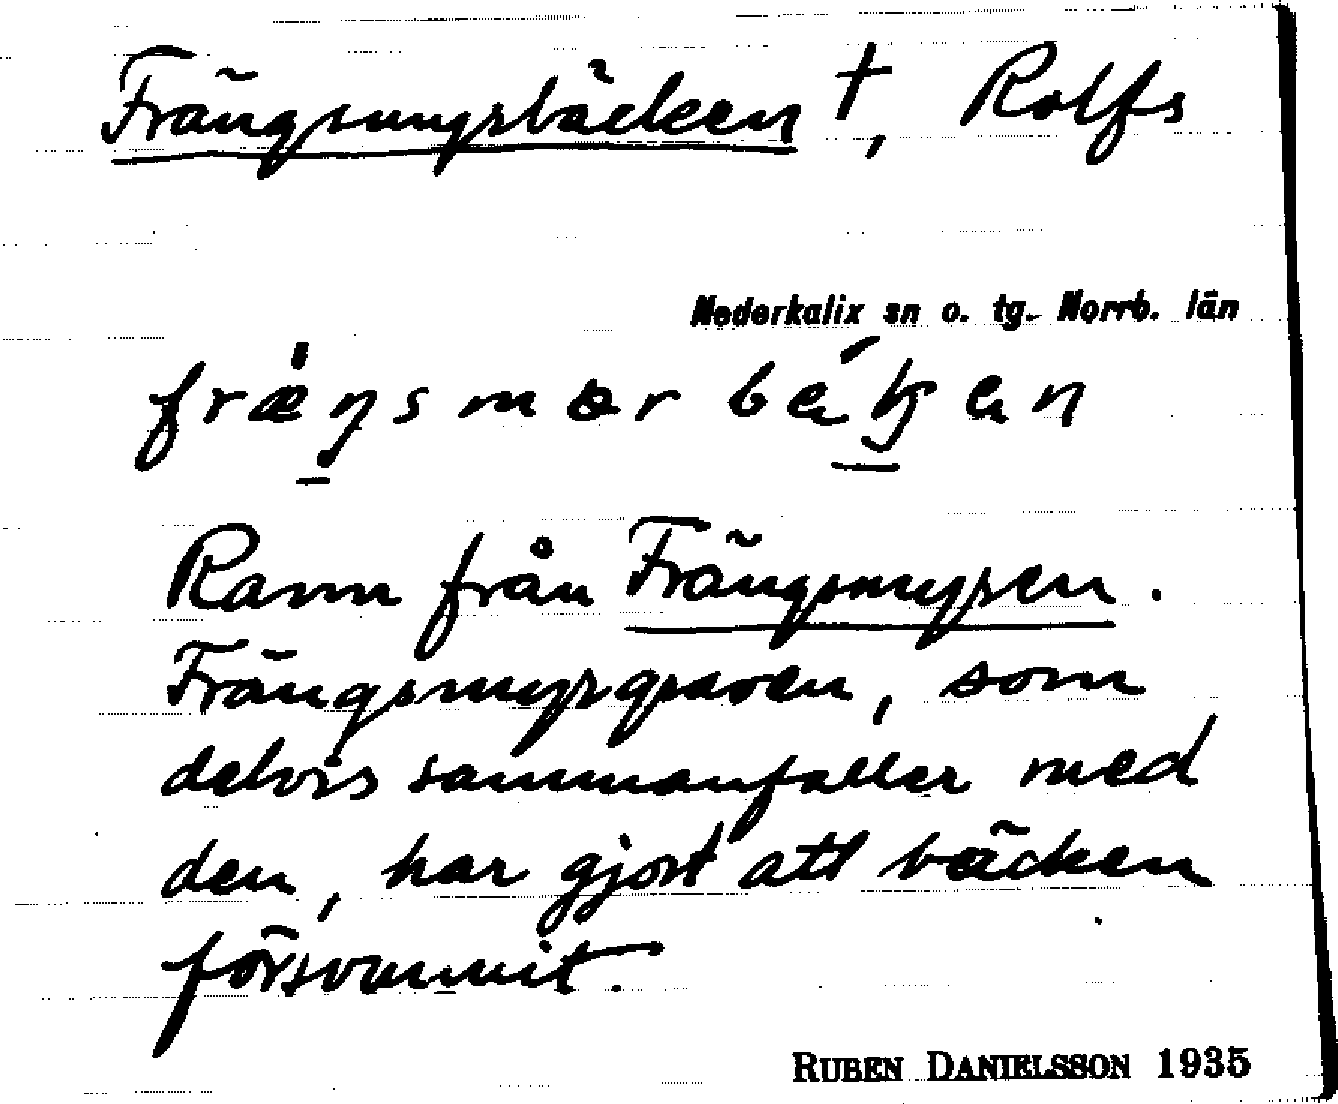 Frängsmyrsbäcken †, Rolfs
Nederkalix sn o. tg. Norrb. län
Rann från Frängsmyren.
Frängsmyrgraven, som
delvis sammanfaller med
den, har gjort att bäcken
försvunnit.
RUBEN DANIELSSON 1935